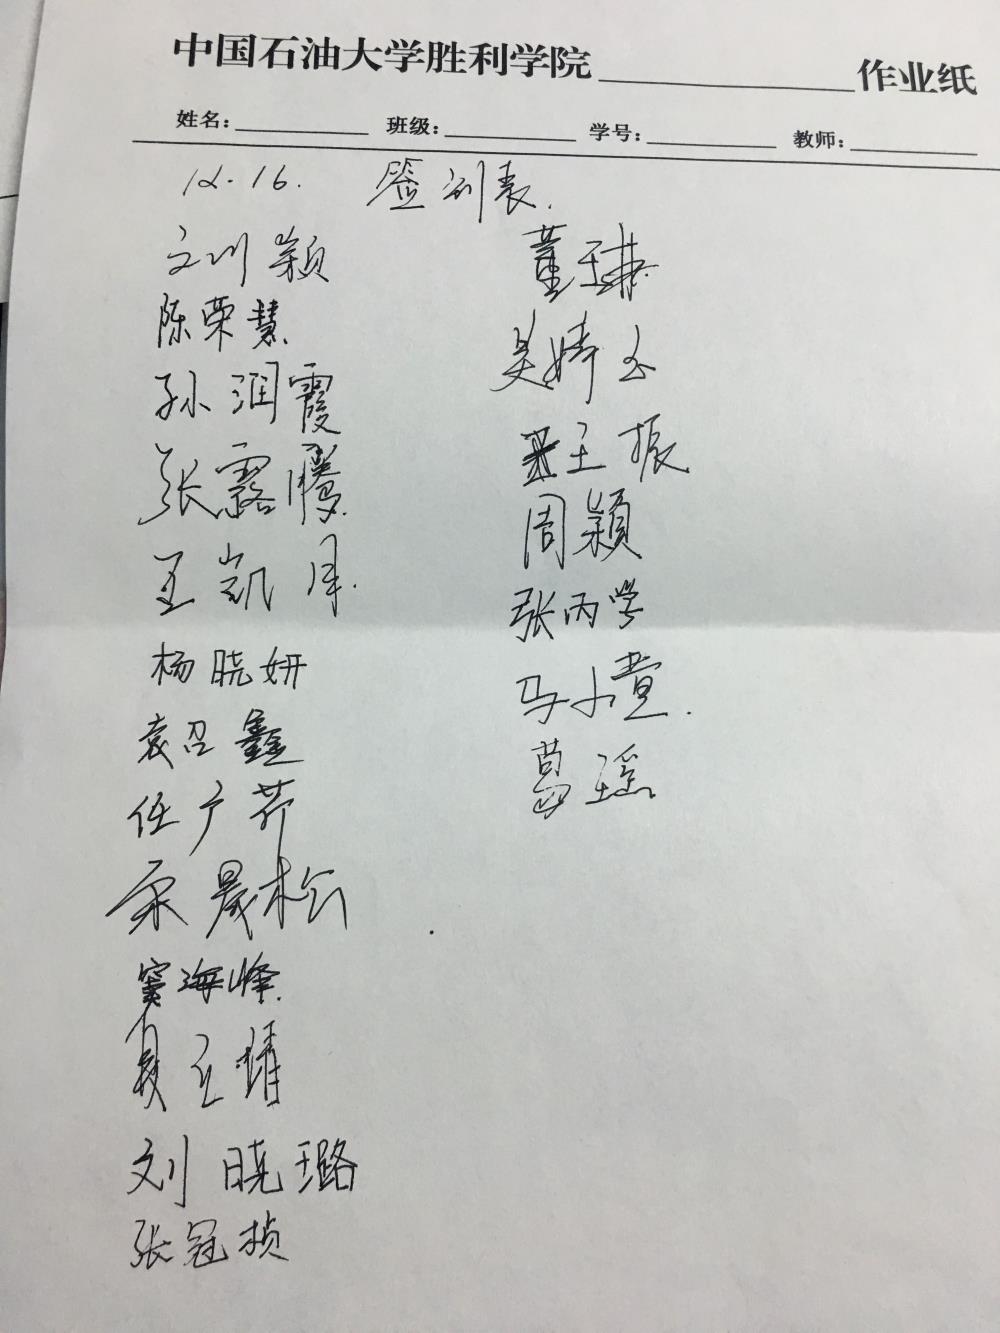 中国石油大学胜利学院 作业纸
姓名: 班级: 学号: 教师:
12.16. 签到表.
刘颖
陈荣慧
孙润霞
张露腾
王凯月.
杨晓妍
袁召鑫
任广芹
晟松
窦海峰
夏立靖
刘晓璐
张冠桢
董王琳
吴婷玉
王振
周颖
张丙学
马小萱.
葛瑶